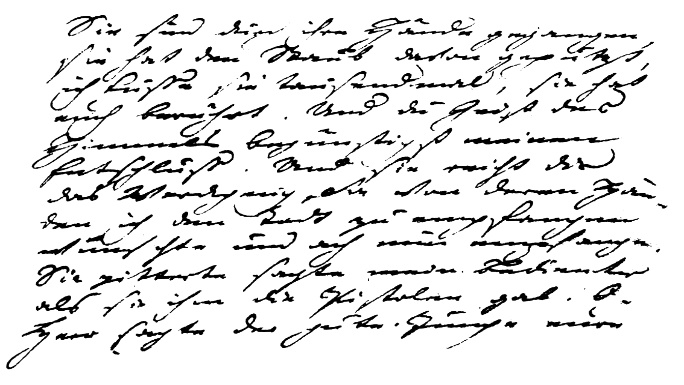 Sie sind durch ihre Hände gegangen,
sie hat den Staub davon geputzt,
ich küsse sie tausendmal, sie hat
euch berührt. Und du Geist des
Himmels begünstigst meinen
Entschluß. Und sie reicht dir
das Werckzeug, Sie von deren Hän-
den ich den Todt zu empfangen
wünschte und ach nun empfange.
Sie zitterte sagte mein Bedienter
als sie ihm die Pistolen gab. O
Herr sagte der gute Junge eure